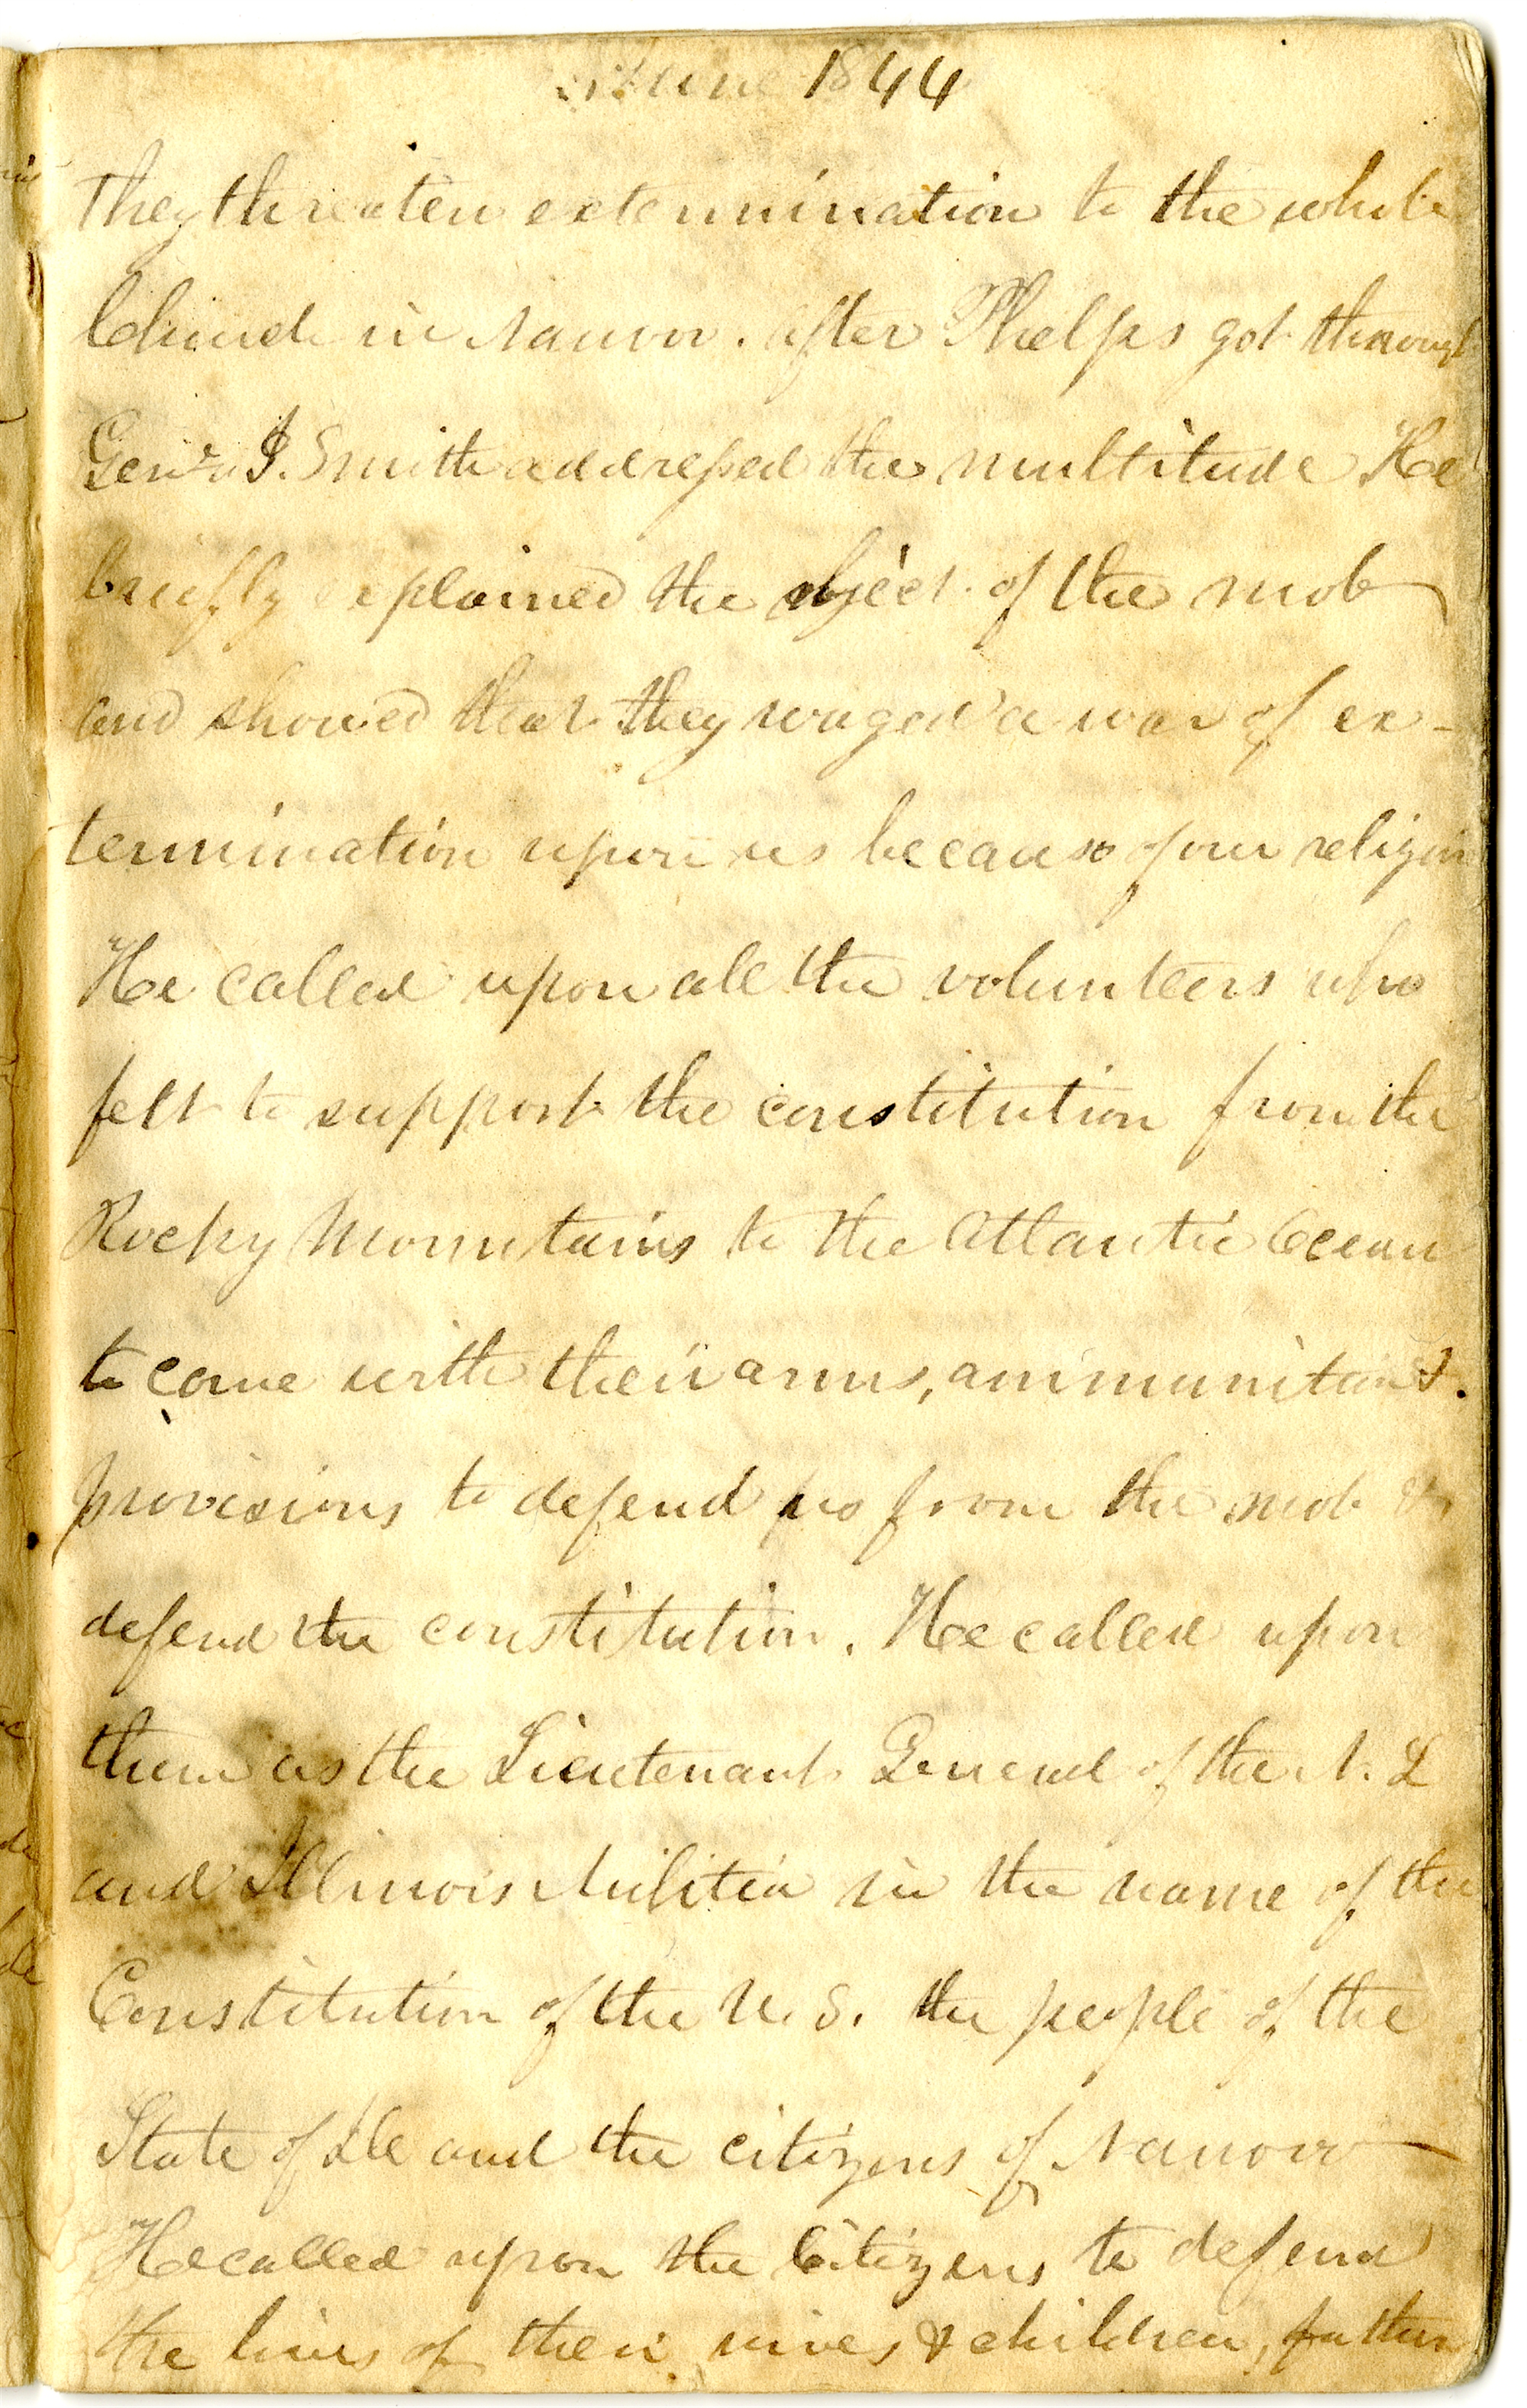 June 1844
They threaten extermination to the whole
Church in Nauvoo. after Phelps got through
Genr. J. Smith addressed the multitude He
briefly explained the object of the mob
and showed that they waged a war of ex-
termination upon us because of our religion
He called upon all the volunteers who
felt to support the constitution from the
Rocky Mountains to the Atlantic Ocean
to come with their arms, ammunition &.
provisions to defend us from the mob &
defend the constitution. He called upon
them as the Lieutenant General of the N. L
and Illinois Militia in the name of the
Constitution of the U. S. the people of the
State of Ill and the citizens of Nauvoo
He called upon the Citizens to defend
the lives of their wives & children, father